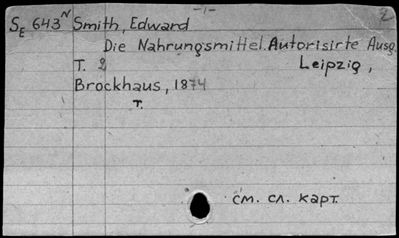 -1-
2
SE 643N Smith, Edward
Die Nahrungsmittel. Autorisirte Ausg.
T. 2 Leipzig,
Brockhaus, 1874
T.
см. сл. карт.